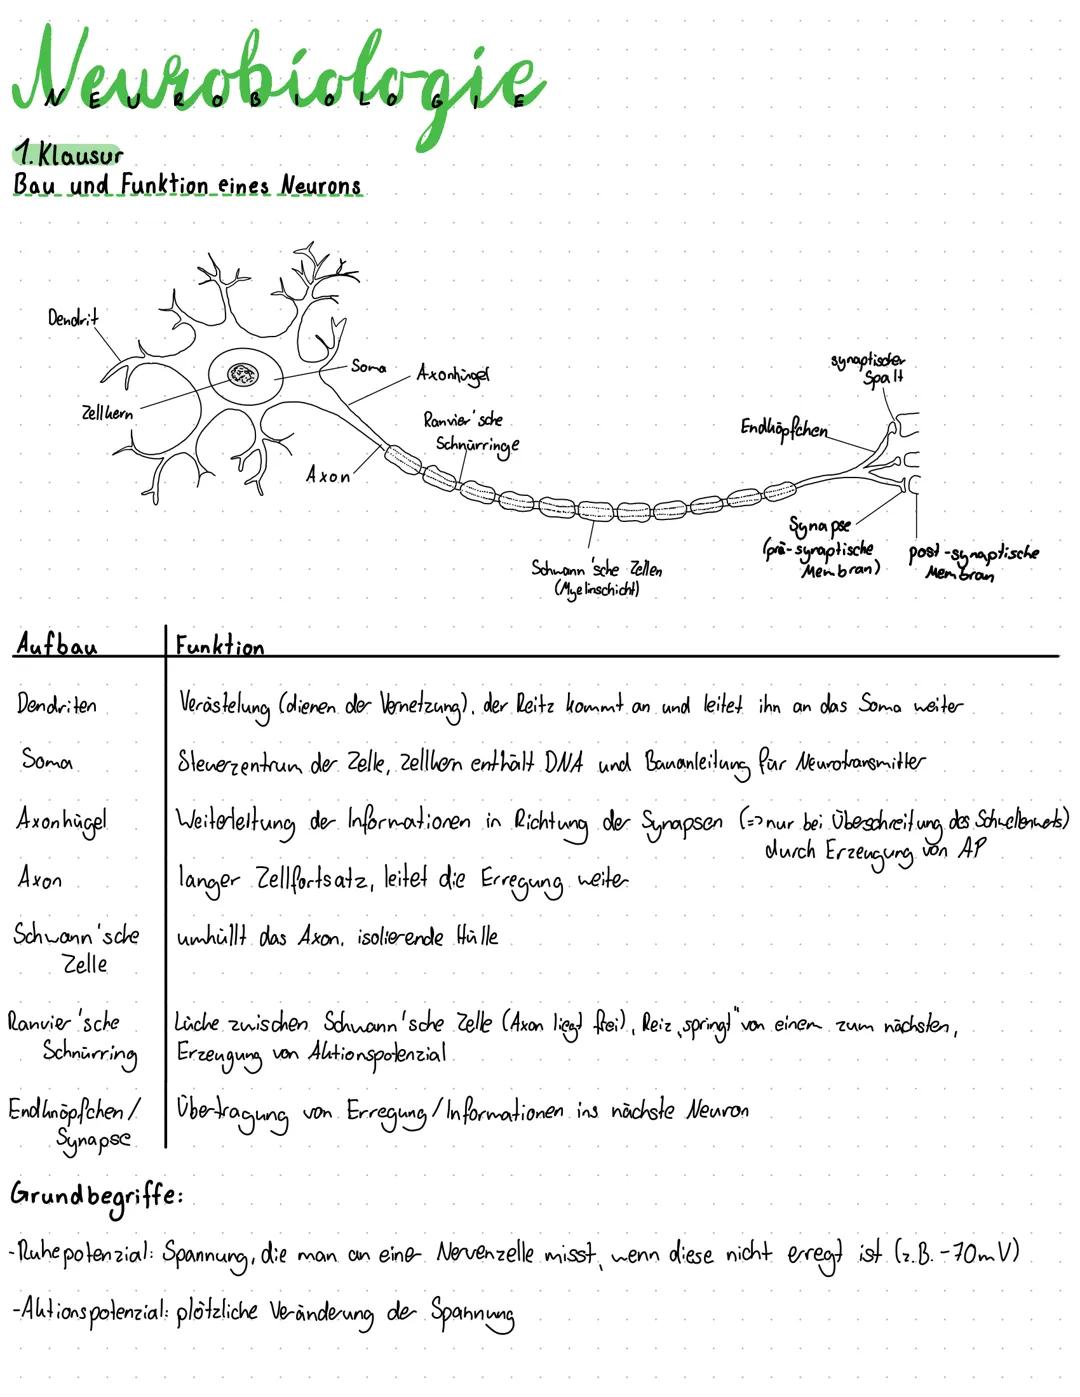 Neurobiologie
NEUROBIOLOGIE
1. Klausur
Bau und Funktion eines Neurons
Dendrit
Zellkern
Soma
Axonhügel
Ranvier'sche
Schnürringe
Axon
Schwann'sche Zellen
(Myelinschicht)
synaptischer
Spalt
Endköpfchen
Synapse
(prä-synaptische
Membran)
post-synaptische
Membran
Aufbau Funktion
Dendriten Verästelung (dienen der Vernetzung), der Reitz kommt an und leitet ihn an das Soma weiter
Soma Steuerzentrum der Zelle, Zellkern enthält DNA und Bauanleitung für Neurotransmitter
Axonhügel Weiterleitung der Informationen in Richtung der Synapsen (=> nur bei Überschreitung des Schwellenwerts)
durch Erzeugung von AP
Axon langer Zellfortsatz, leitet die Erregung weiter
Schwann'sche umhüllt das Axon, isolierende Hülle
Zelle
Ranvier'sche Lücke zwischen Schwann'sche Zelle (Axon liegt frei), Reiz „springt" von einem zum nächsten,
Schnürring Erzeugung von Aktionspotenzial
Endknöpfchen/ Übertragung von Erregung/Informationen ins nächste Neuron
Synapse
Grundbegriffe:
-Ruhepotenzial: Spannung, die man an einer Nervenzelle misst, wenn diese nicht erregt ist (z.B. -70mV)
-Aktionspotenzial: plötzliche Veränderung der Spannung